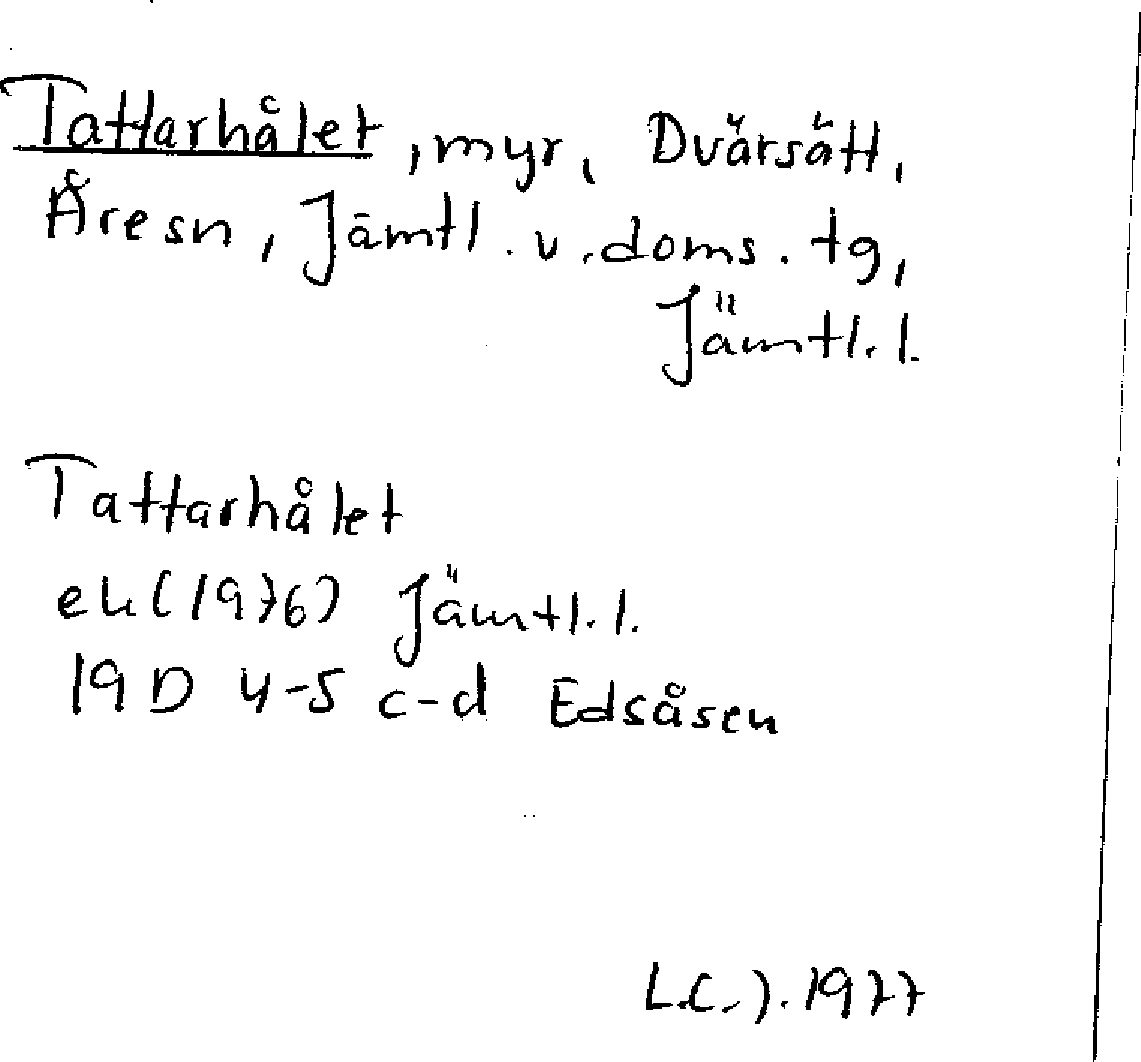 Tattarhålet, myr, Dvärsätt,
Åre sn, Jämtl. v. doms. tg,
Jämtl. l.
Tattarhålet
ek (1976) Jämtl. l.
19 D 4-5 c-d Edsåsen
L.C.J. 1977